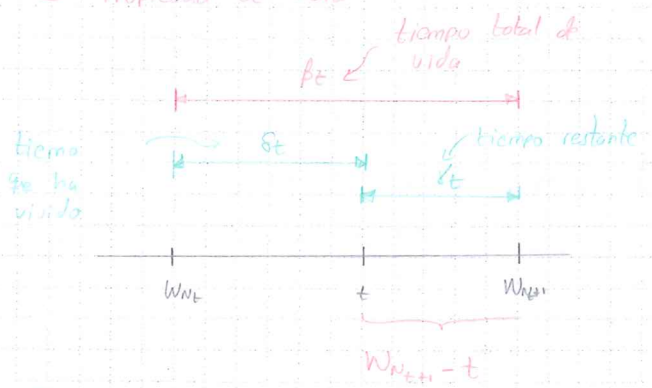 tiempo total de
vida
βt
tiempo
que ha
vivido
δt
tiempo restante
γt
W_{N_t}
t
W_{N_t+1}
W_{N_t+1} - t